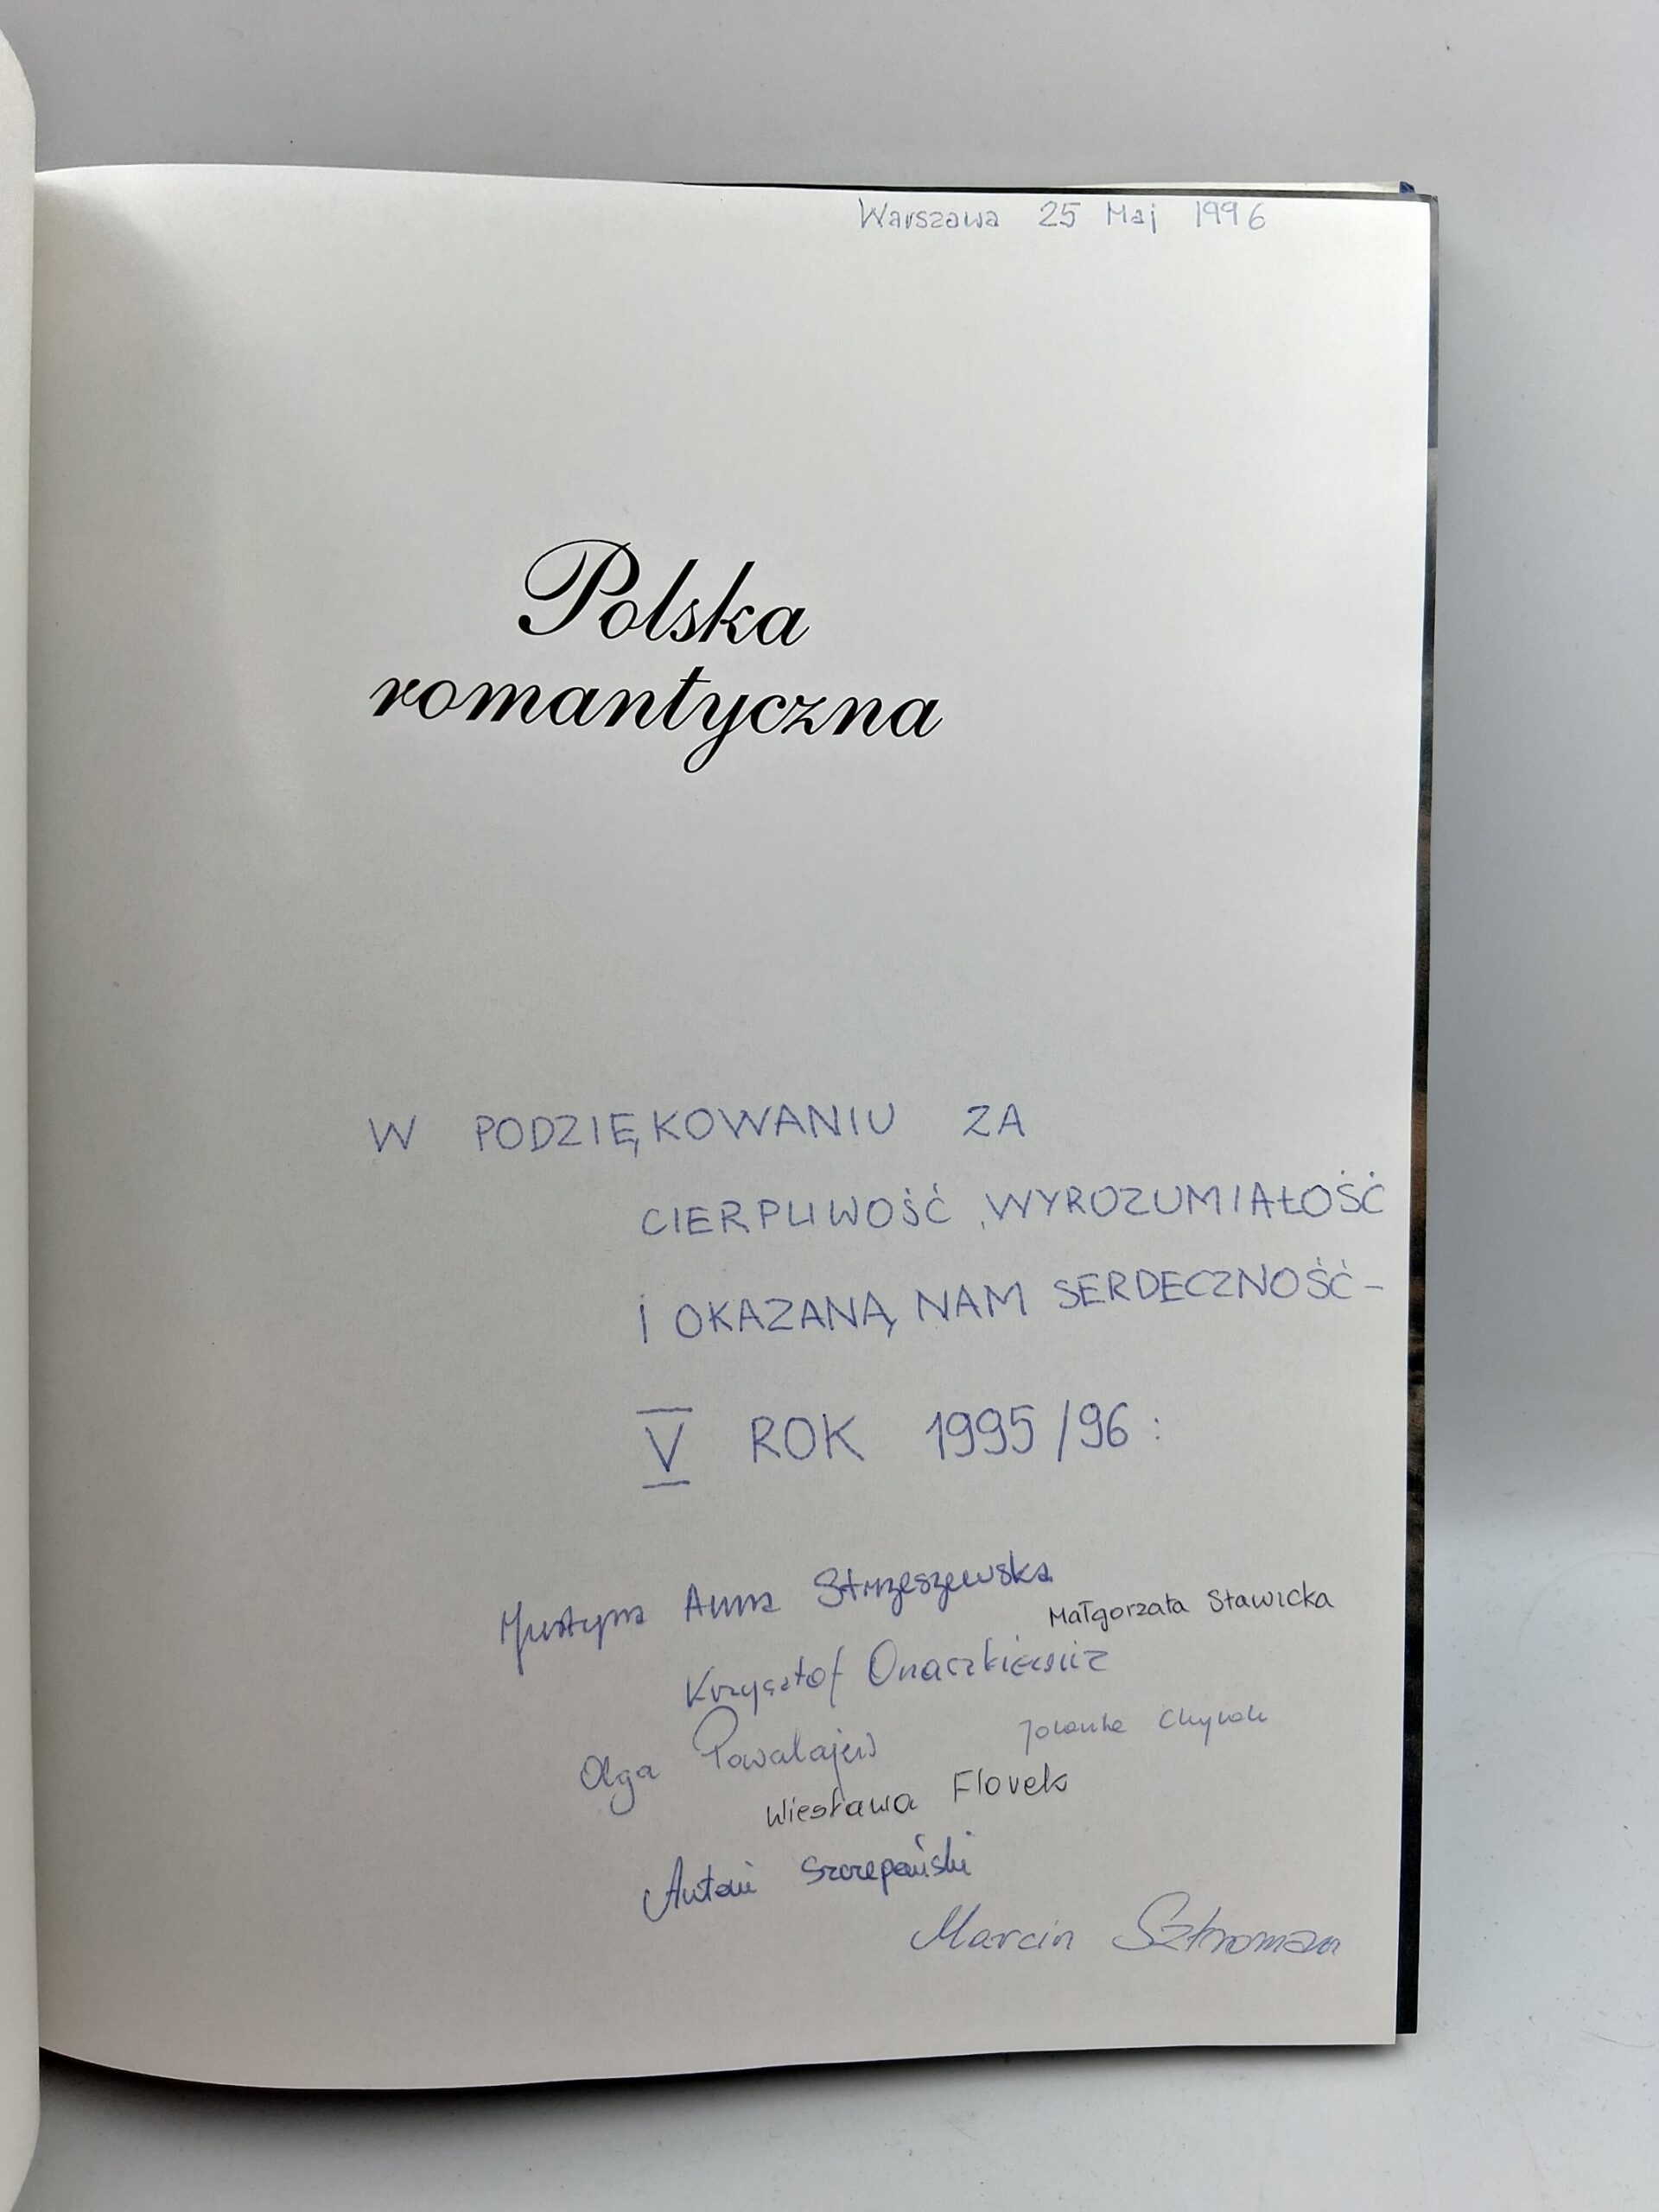 Warszawa 25 Maj 1996
Polska
romantyczna
W PODZIĘKOWANIU ZA
CIERPLIWOŚĆ, WYROZUMIAŁOŚĆ
I OKAZANĄ NAM SERDECZNOŚĆ –
V ROK 1995/96:
Justyna Anna Strzeszewska
Małgorzata Stawicka
Krzysztof Onaczkiewicz
Olga
Jolanta
Wiesława Florek
Antoni Szczepański
Marcin Sztroman